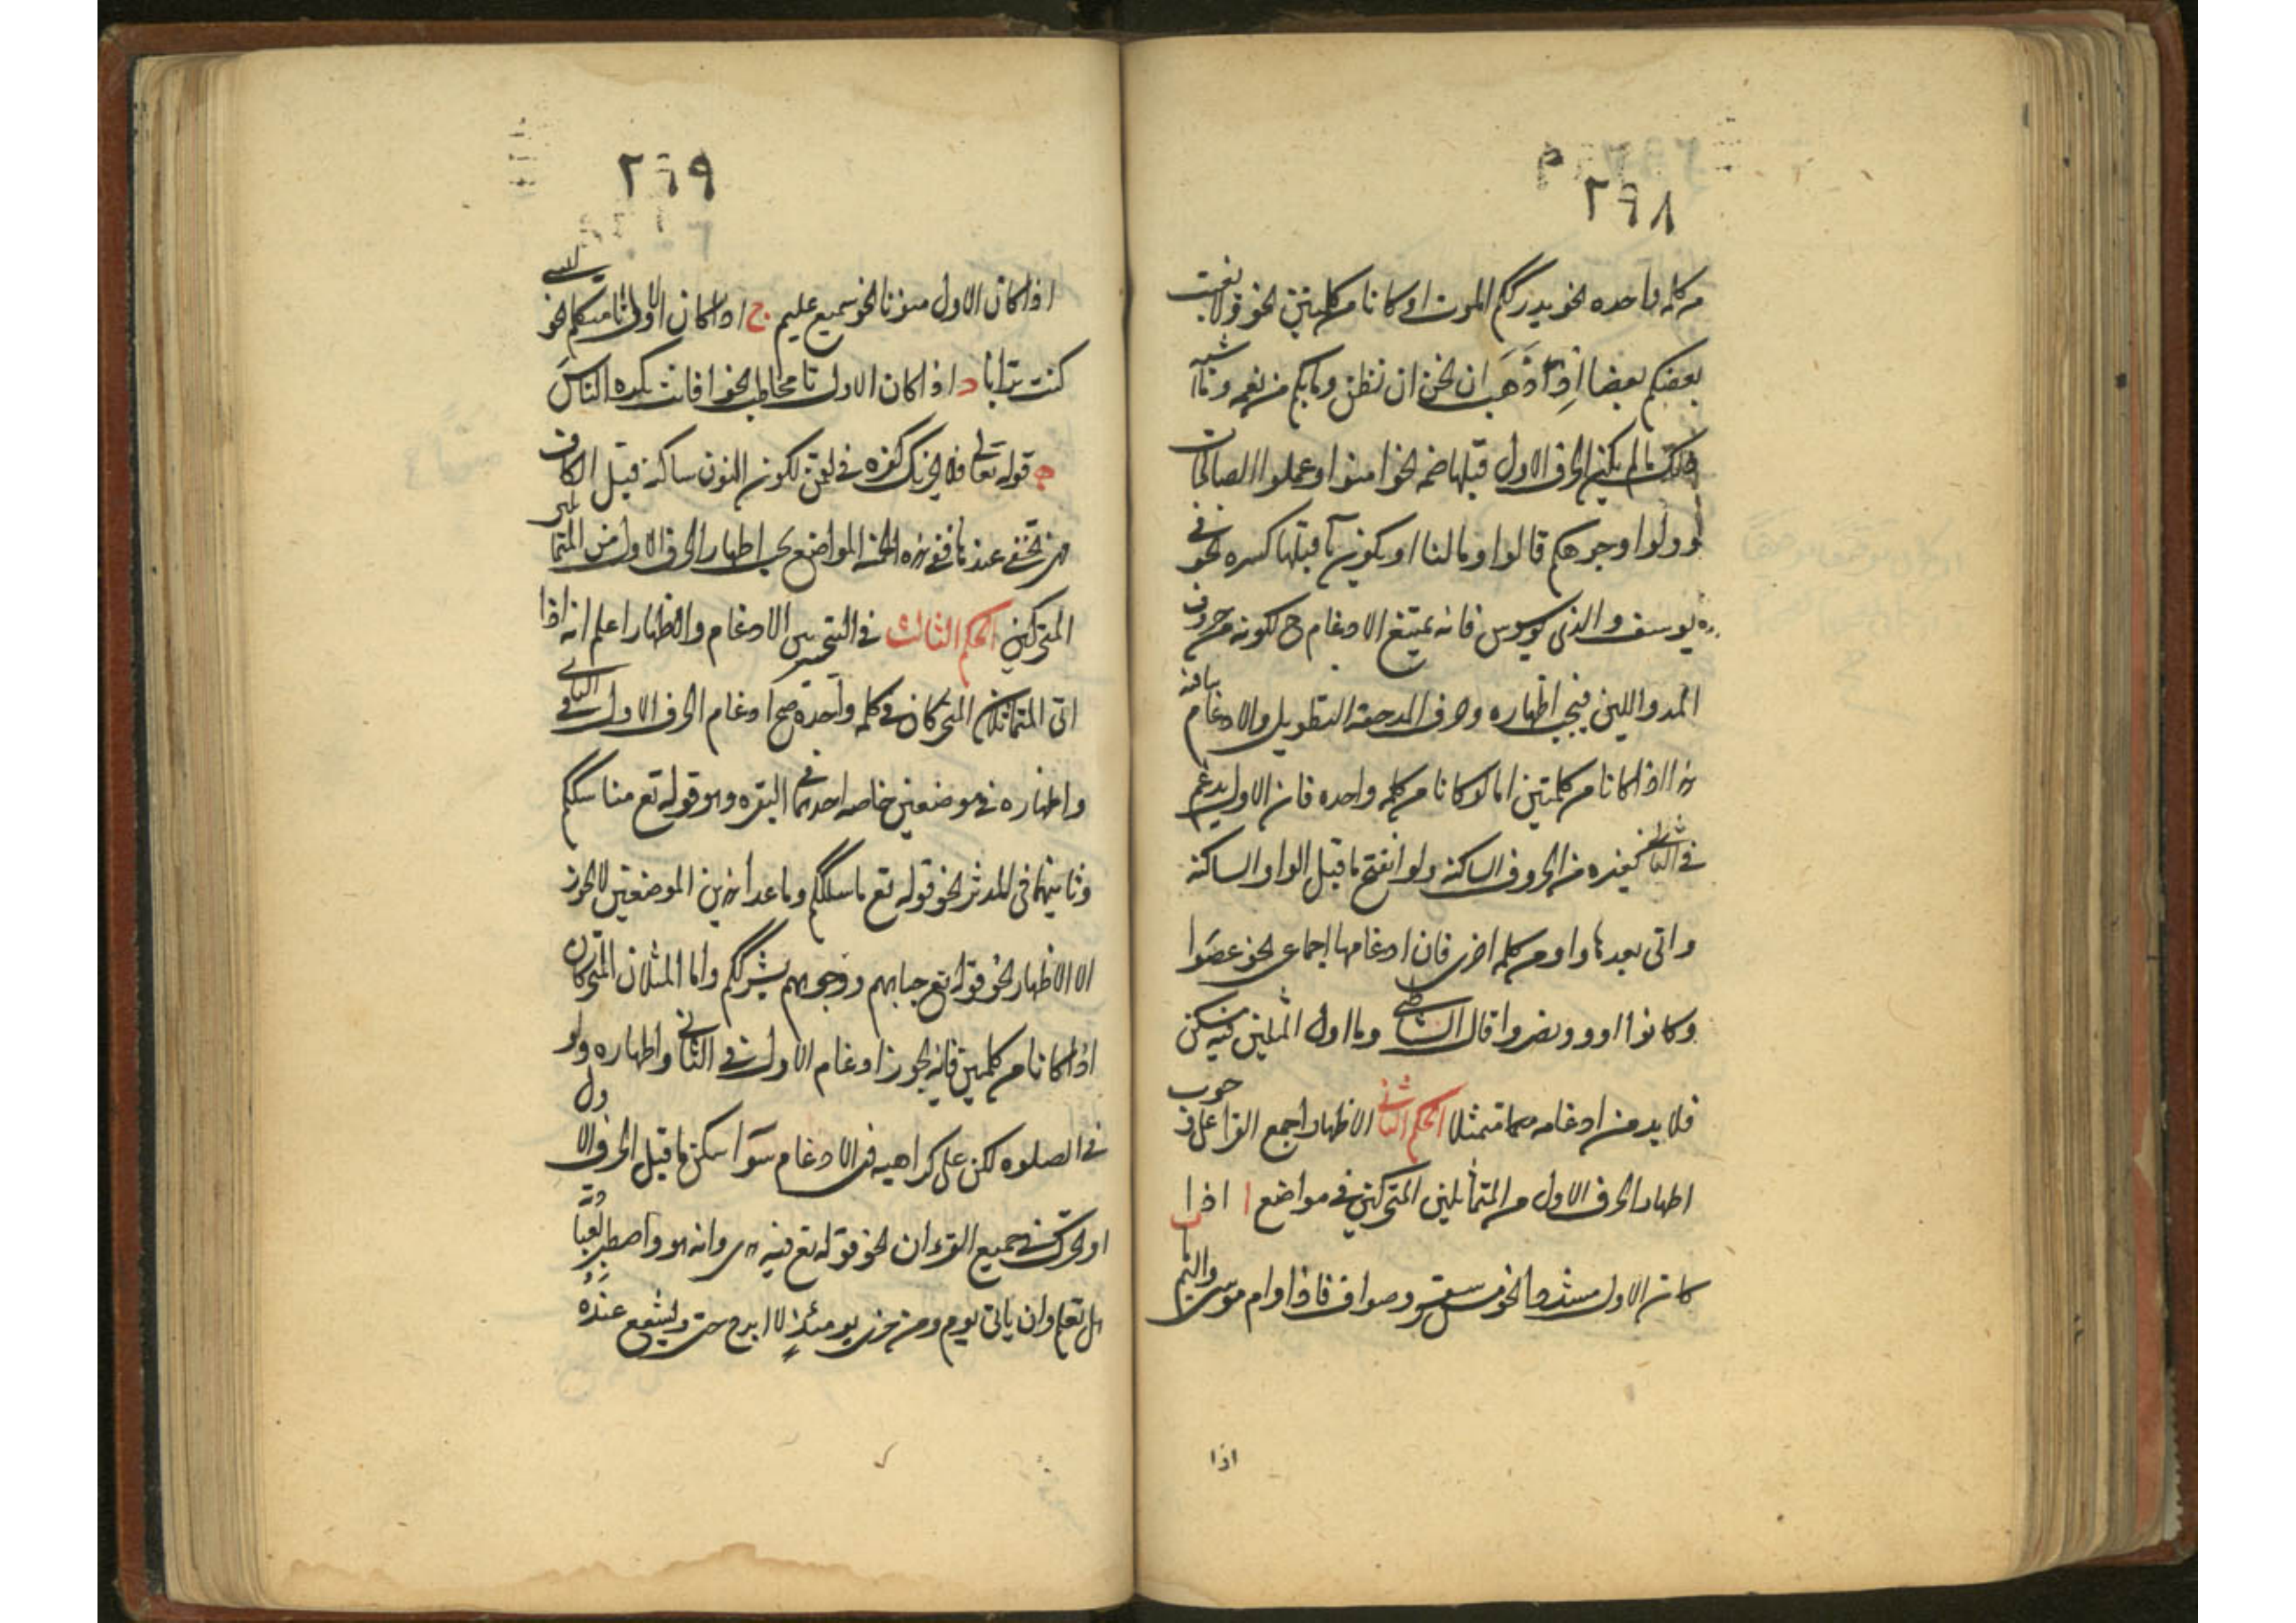 ٢٩٨
من كلمه واحده نحو يدرككم الموت او كانا من كلمتين نحو ولا يغتب
بعضكم بعضا اذ ذهب ان نحن ان نظن وما بكم من نعمه وشبه
ذلك ما لم يكن الحرف الاول قبلها ضمه نحو امنوا وعملوا الصالحات
وولوا وجوهكم قالوا وما لنا او يكون ما قبلها كسره نحو في
يوسف والذي يوسوس فانه يمتنع الادغام ح لكونه من حروف
المد واللين فيجب اظهاره وحرف المد حقه التطويل والادغام ينافيه
هذا اذا كانا من كلمتين اما لو كانا من كلمه واحده فان الاول يدغم
في الثاني كغيره من الحروف الساكنه ولو انفتح ما قبل الواو الساكنه
واتى بعدها واو من كلمه اخرى فان ادغامها اجماعى نحو عصوا
وكانوا اووا ونصروا قال الشاطبي وما اول المثلين فيه مسكن
فلا بد من ادغامه متمثلا الحكم الثاني الاظهار اجمع القرا على وجوب
اظهار الحرف الاول من المتماثلين المتحركين في مواضع ا اذا
كان الاول مشددا نحو مس سقر وصواف فاذا وام موسى واليم ب
اذا
٢٩٩
اذا كان الاول منونا نحو سميع عليم ج اذا كان الاول تا متكلم نحو
كنت ترابا د اذا كان الاول تا مخاطب نحو افانت تكره الناس
ه قوله تعالى فلا يحزنك كفره في لقمن لكون النون ساكنه قبل الكاف
فهي تخفى عندها ففي هذه الخمسه المواضع يجب اظهار الحرف الاول من المتماثلين
المتحركين الحكم الثالث في التخيير بين الادغام والاظهار اعلم انه اذا
اتى المتماثلان المتحركان في كلمه واحده صح ادغام الحرف الاول في الثاني
واظهاره في موضعين خاصه احدهما في البقره وهو قوله تع مناسككم
وثانيهما في المدثر نحو قوله تع ما سلككم وما عدا هذين الموضعين لا يجوز
الا الاظهار نحو قوله تع جباههم ووجوههم بشرككم واما المثلان المتحركان
اذا كانا من كلمتين فانه يجوز ادغام الاول في الثاني واظهاره ولو
في الصلوه لكن على كراهيه في الادغام سوآ سكن ما قبل الحرف الاول
او تحرك في جميع القرءان نحو قوله تع فيه هدى وانه هو واصطبر لعبادته
هل تعلم وان ياتى يوم ومن خزي يومئذ لا ابرح حتى ويشفع عنده